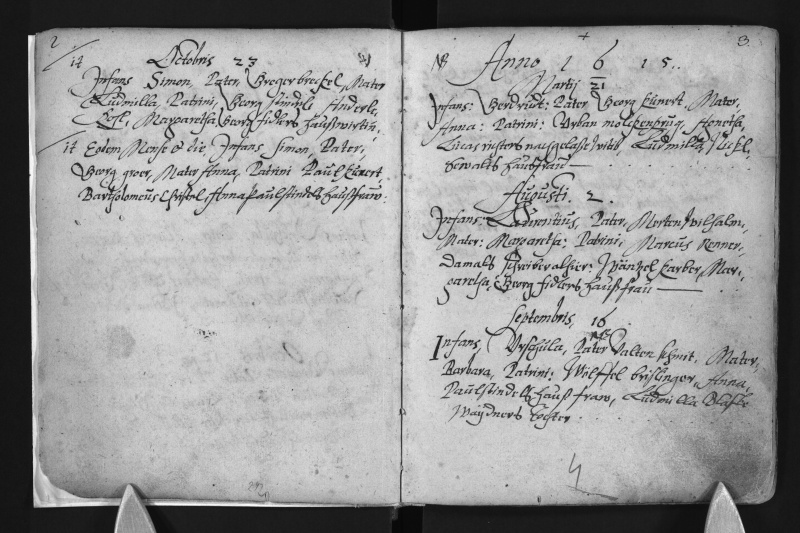 2
14 Octobris 23
Infans Simon, Pater, Greger breckel, Mater
Ludmilla, Patrini, Georg
Margaretha Georg Fidlers haußwirtin,
14 Eodem Mense et die, Infans Simon, Pater,
Georg groer, Mater Anna, Patrini Paul Kunert,
Bartholomeus Christel, Anna Paul stindels haußfraw.
NB Anno 1615. 3.
Martij 21
Infans: Gerdrudt: Pater Georg Kunert, Mater,
Anna: Patrini: Urban
Lucas nachgelaße Ludmilla
haußfraw
Augusti. 2.
Infans: Laurentius, Pater, Merten Wilhalm,
Mater: Margaretha: Patrini, Marcus Renner,
Damals Schreiber alhier: Wäntzel Farber, Mar-
garetha, Georg Fidlers haußfrau
Septembris, 16
Infans, Urschula, Pater Valten Schmit, Mater,
Barbara, Patrini: Wölffel brislinger, Anna,
Paul stindels haußfraw, Ludmilla Blaske
Waydners tochter
4